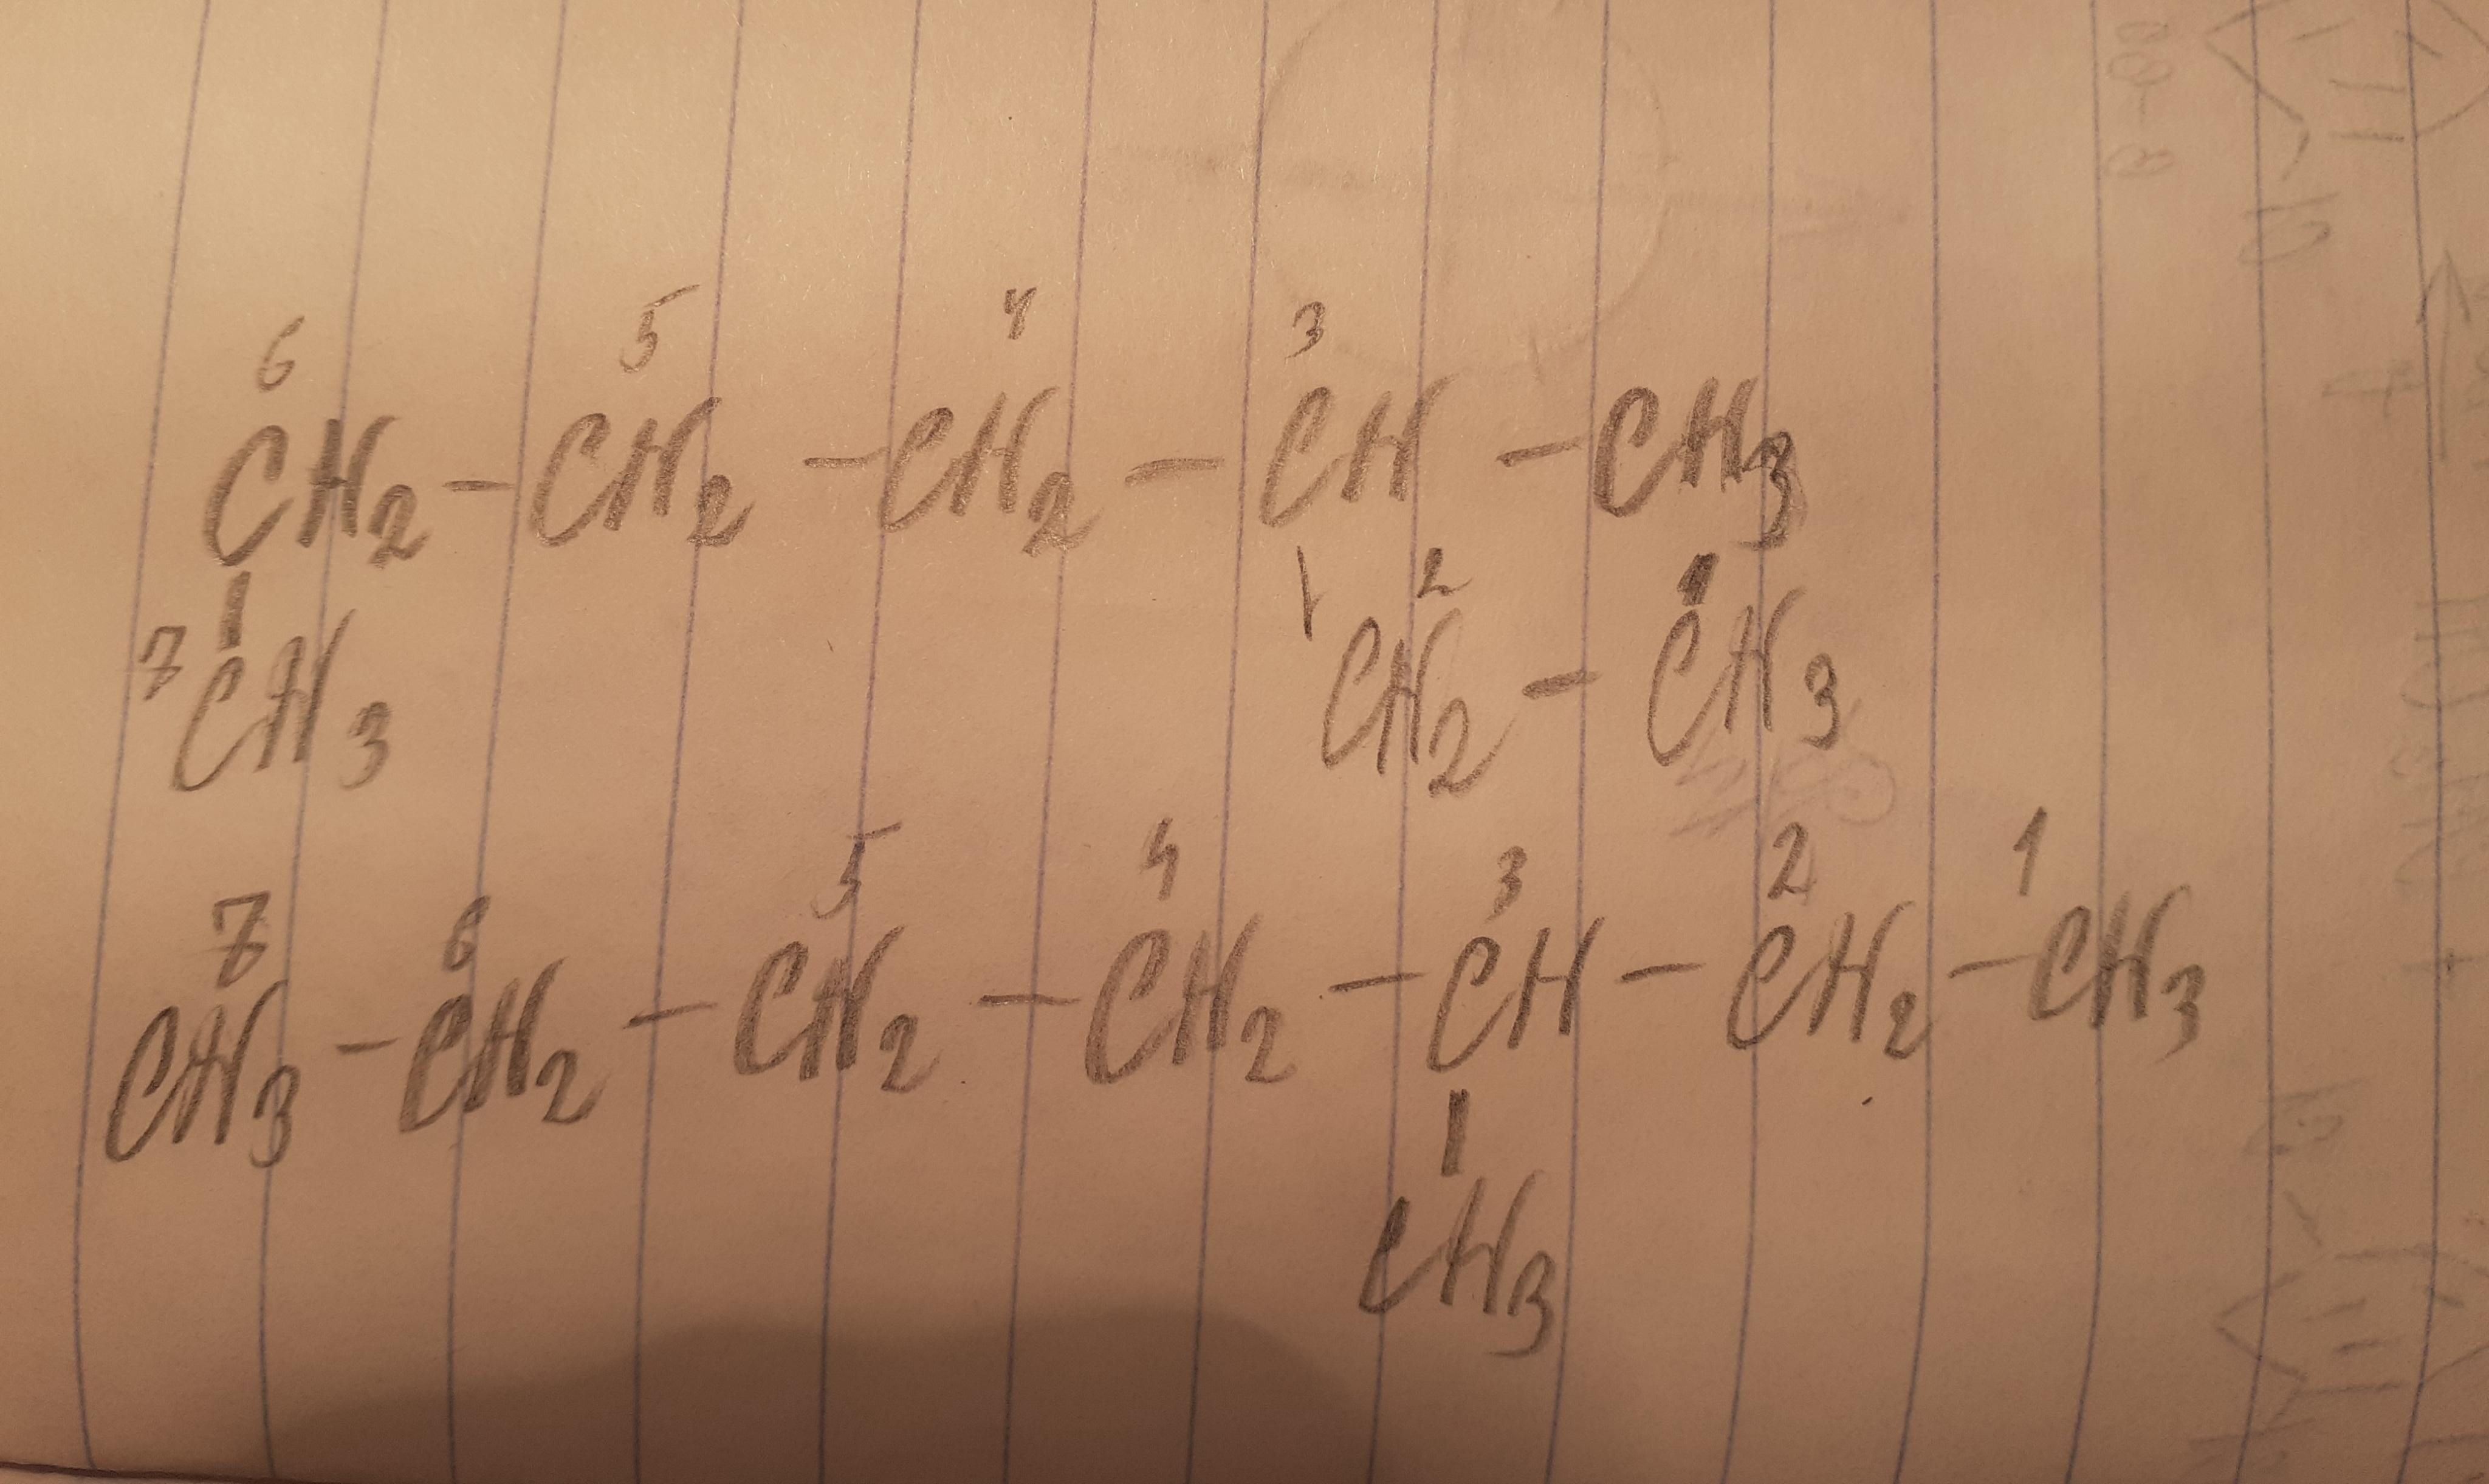 6 5 4 3
CH2 - CH2 - CH2 - CH - CH3
| | 2 1
7 CH3 CH2 - CH3
7 6 5 4 3 2 1
CH3 - CH2 - CH2 - CH2 - CH - CH2 - CH3
|
CH3